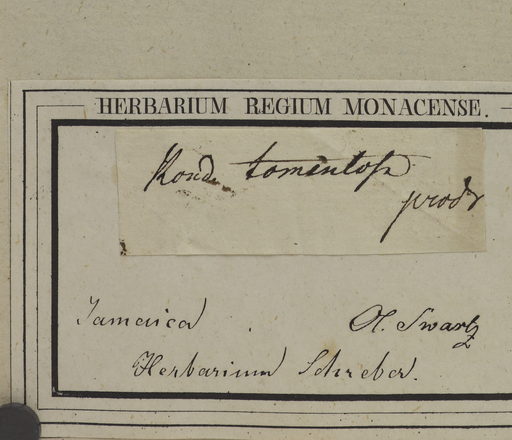 HERBARIUM REGIUM MONACENSE.
Rond. tomentosa
prodr
Jamaica Ol. Swartz
Herbarium Schreber.